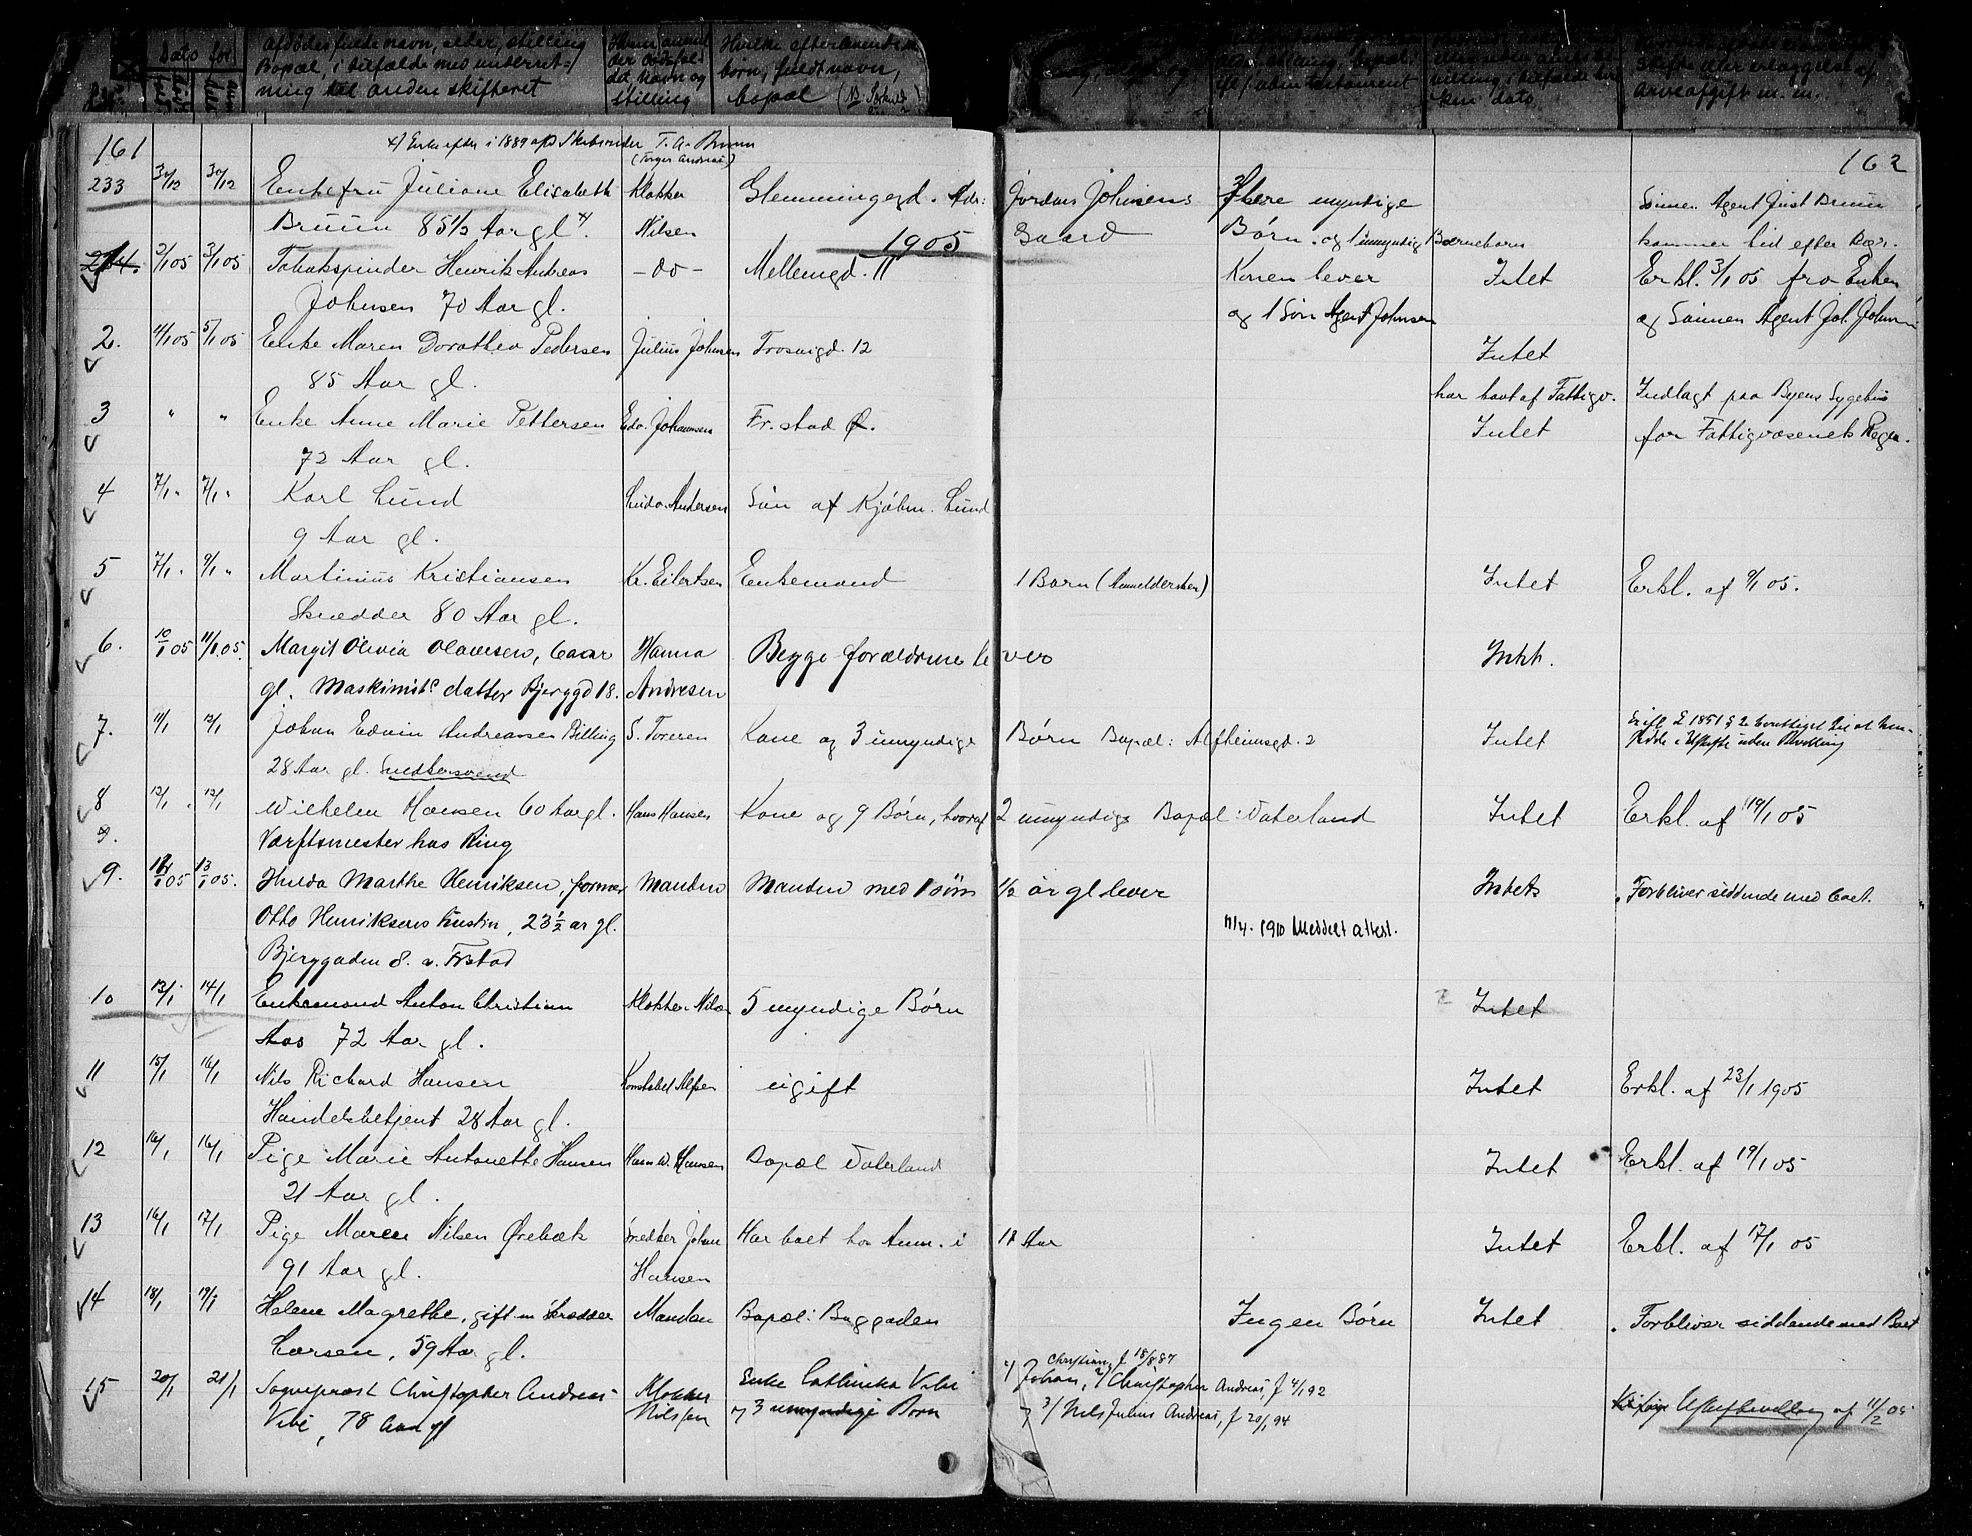 Afdødes fulde navn, alder, stilling
Bopæl, i tilfælde med underret-
ning til anden skifteret
Dato for
det navn og
stilling
Hvilke efterlevende
børn, fuldt navn,
bopæl
161
x) Enke efter i 1889 afd Skibsreder T. A. Bruun
(Torger Andreas)
162
233 30/12 30/12 Enkefru Juliane Elisabeth Klokker Glemmingegd. Adr: Jordan Johnsens Flere myndige Sønnen Agent Just Bruun
Bruun 85 1/2 Aar gl x). Nilsen Gaard Børn og 1 umyndig Barnebarn kommer hid efter
1905
234. 2/1 05 3/1 05 Tobakspinder Henrik Andreas -do- Mellemgd. 11 Konen lever Intet Erkl. 3/1 05 fra Enken
Johnsen 70 Aar gl. og 1 Søn Agent Johnsen og Sønnen Agent Joh. Johnsen
2. 4/1 05 5/1 05 Enke Maren Dorothea Pedersen Julius Johnsen Trosvigd. 12 Intet
85 Aar gl.
har havt af Fattigv. Indlagt paa Byens Sygehus
3 " " Enke Anne Marie Pettersen Edv. Johannsen Fr.stad Ø. Intet for Fattigvæsenets Regn.
72 Aar gl.
4 7/1 " 7/1 " Karl Lund Andersen Søn af Kjøbm. Lund
9 Aar gl.
5 7/1 " 9/1 " Martinius Kristiansen Kr. Eilertsen Enkemand 1 Barn (Anmeldersken) Intet Erkl. af 9/1 05.
Skrædder 80 Aar gl.
6. 10/1 05 11/1 05. Margit Olivia Olavesen, 6 aar Hanna Begge forældrene lever Intet.
gl. Maskinists datter Bjerggd 18. Andresen
7. 11/1 12/1 Johan Edvin Andreassen Billing S. Toresen Kone og 3 umyndige Børn Bopæl: Alfheimsgd. 2 Intet
28 Aar gl. Smedsvend
8 12/1 12/1 Wilhelm Hansen 60 Aar gl. Hans Hansen Kone og 9 Børn, hvoraf 2 umyndige Bopæl: Vaterland Intet Erkl. af 19/1 05
Værftsmester hos Ring
9. 05 13/1 05. Hulda Marthe Henriksen, former Manden Manden med 1 søn 1/2 år gl lever Intet Forbliver siddende med boet.
Otto Henriksens hustru, 23 1/2 ar gl. 11/4. 1910 Meddelt attest.
Bjerggaden 8. a. Frstad
10 13/1 14/1 Enkemand Anton Christian Klokker Nilsen 5 myndige Børn Intet
Aas 72 Aar gl.
11 15/1 16/1 Nils Richard Hansen Konstabel Alfsen ugift Intet Erkl. af 23/1 1905
Handelsbetjent 28 Aar gl.
12 16/1 16/1 Pige Marie Antonette Hansen Hans W. Hansen Bopæl Vaterland Intet Erkl. af 19/1 05
21 Aar gl.
13 16/1 17/1 Pige Maren Nilsen Ørebæk Smedker Johan Har boet hos Anm. i 11 Aar Intet Erkl. af 17/1 05
91 Aar gl. Hansen
14 18/1 19/1 Helene Magrethe, gift m Skrædder Manden Bopæl: Baggaden Ingen Børn Intet Forbliver siddende med Boet
Larsen, 59 Aar gl.
15 20/1 21/1 Sogneprest Christopher Andreas Klokker Enke Cathinka Vibe 1/ Johan Christian, f 18/8 87 2/ Christopher Andreas, f 4/1 92
Vibe, 78 Aar gl Nilsen og 3 umyndige Børn 3/ Nils Julius Andreas, f 20/1 94 Uskiftebevilling af 11/2 05